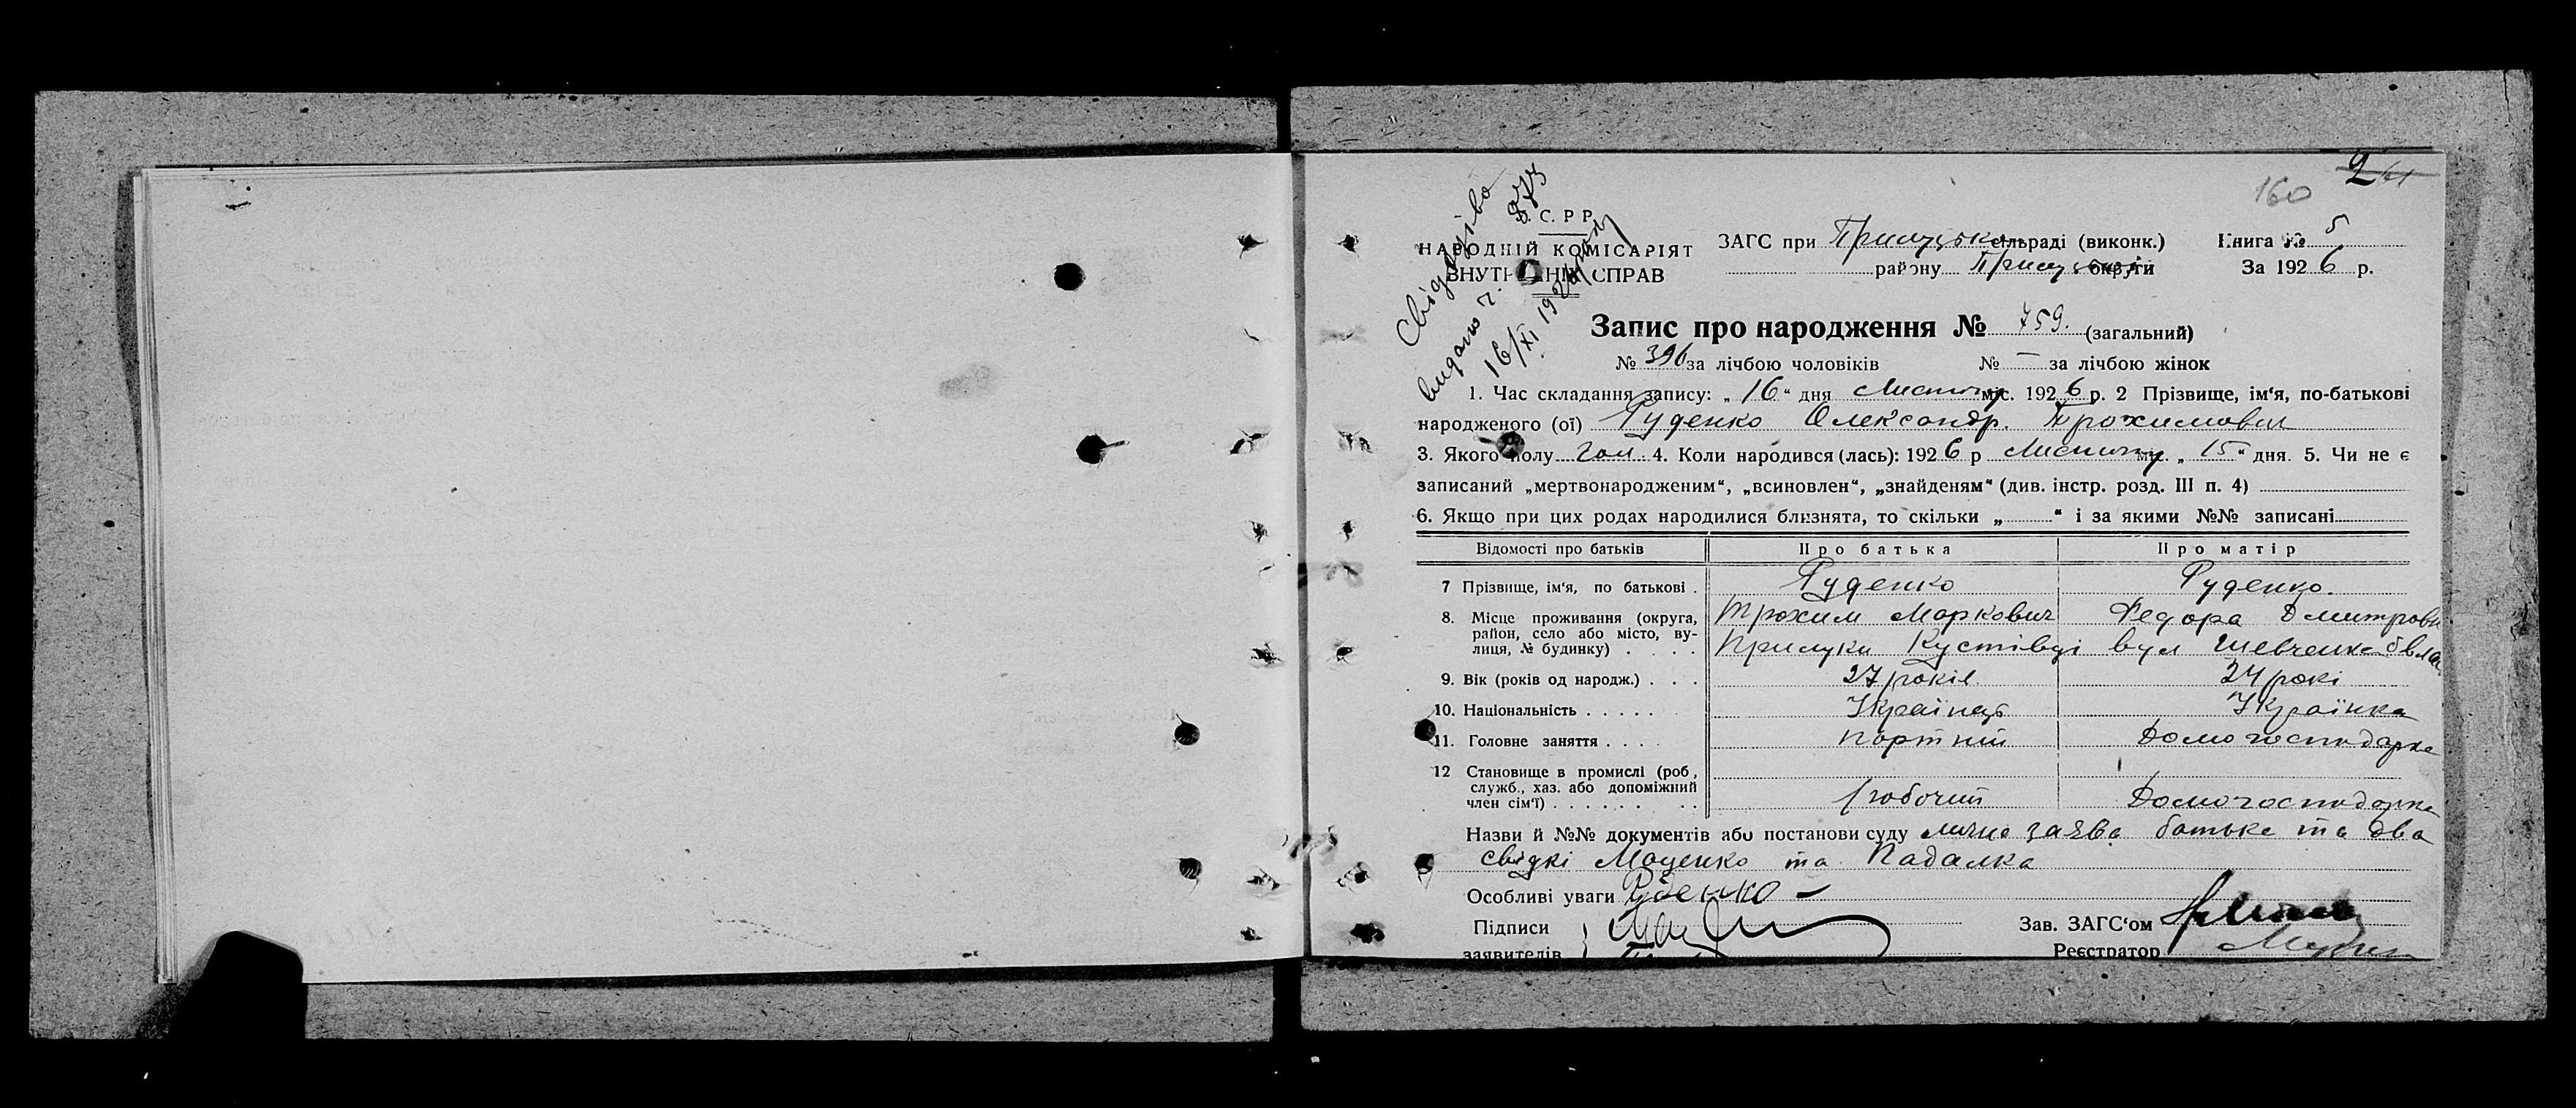 2
160
Свідоцтво
видано ч. 873
16/XI 1926 року
У. С. Р Р.
НАРОДНІЙ КОМІСАРІЯТ
ВНУТРІШНІХ СПРАВ
ЗАГС при Прилуцькій сільраді (виконк.) Книга № 5
району Прилуцької округи За 1926 р.
Запис про народження № 759. (загальний)
№ 396 за лічбою чоловіків № — за лічбою жінок
1. Час складання запису: „16“ дня Листопду міс. 1926 р. 2 Прізвище, ім‘я, по-батькові
народженого (ої) Руденко Олександр. Трохимович
3. Якого полу чол 4. Коли народився (лась): 1926 р Листопду міс. „15“ дня. 5. Чи не є
записаний „мертвонародженим“, „всиновлен“, „знайденям“ (див. інстр. розд. III п. 4)
6. Якщо при цих родах народилися близнята, то скільки „ “ і за якими №№ записані
Відомості про батьків Про батька Про матір
7 Прізвище, ім‘я, по батькові . Руденко Руденко.
8. Місце проживання (округа, Трохим Маркович Федора Дмитровн
район, село або місто, ву-
лиця, № будинку) . . . . Прилуки Кустівці вул Шевченка
9. Вік (років од народж.) . . . 27 років 24 рокі
10. Національність . . . . . Українець Українка
11. Головне заняття . . . . Портний Домогосподарка
12 Становище в промислі (роб,
служб., хаз. або допоміжний
член сім‘ї) . . . . . . . . Робочий Домогосподарка
Назви й №№ документів або постанови суду лична заява батька та два
свідкі Моценко та Падалка
Особливі уваги Руденко —
Підписи Зав. ЗАГС‘ом
заявителів Реєстратор